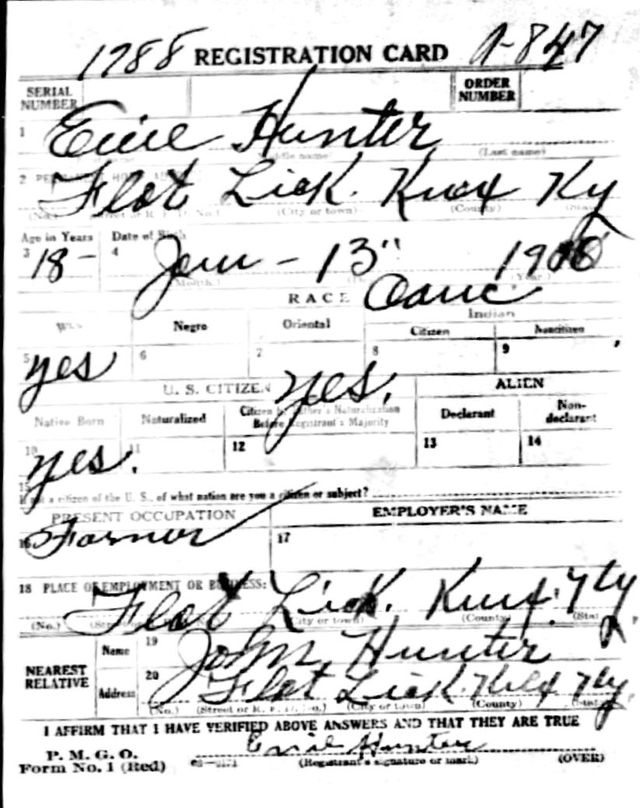 1788 REGISTRATION CARD A-847
SERIAL NUMBER
ORDER NUMBER
1 Hunter
(Last name)
2 Flat Lick. Knox Ky
(No.) (City or town) (County) (State)
Age in Years Date of Birth
3 18 - 4 Jan - 13" 1900
(Month.) (Year.)
RACE Cauc
White Negro Oriental Indian
Citizen Noncitizen
5 yes 6 7 8 9
U. S. CITIZEN yes. ALIEN
Native Born Naturalized Citizen by Father's Naturalization Before Registrant's Majority Declarant Non-declarant
10 yes. 11 12 13 14
15
If not a citizen of the U. S., of what nation are you a citizen or subject?
PRESENT OCCUPATION EMPLOYER'S NAME
16 Farmer 17
18 PLACE OF EMPLOYMENT OR BUSINESS:
Flat Lick. Knox Ky
(No.) (City or town) (County) (State)
NEAREST RELATIVE
Name 19 John Hunter
Address 20 Flat Lick Knox Ky
(No.) (Street or R. F. D. No.) (City or town) (County) (State)
I AFFIRM THAT I HAVE VERIFIED ABOVE ANSWERS AND THAT THEY ARE TRUE
P. M. G. O.
Form No. 1 (Red) Hunter
(Registrant's signature or mark) (OVER)